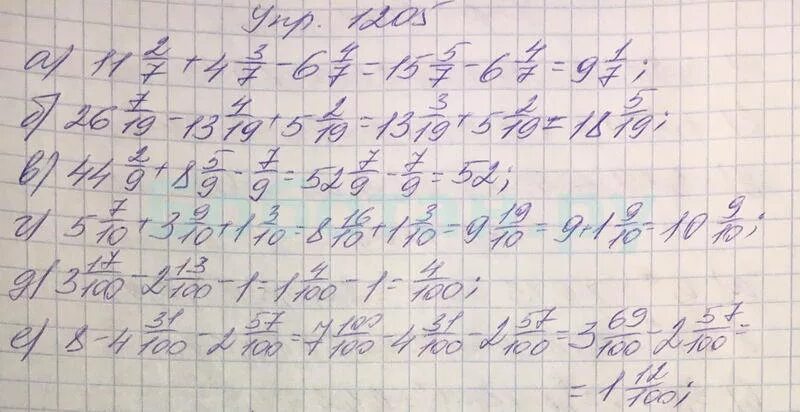 Упр. 1205
а) 11 2/7 + 4 3/7 - 6 4/7 = 15 5/7 - 6 4/7 = 9 1/7;
б) 26 7/19 - 13 4/19 + 5 2/19 = 13 3/19 + 5 2/19 = 18 5/19;
в) 44 2/9 + 8 5/9 - 7/9 = 52 7/9 - 7/9 = 52;
г) 5 7/10 + 3 9/10 + 1 3/10 = 8 16/10 + 1 3/10 = 9 19/10 = 9 + 1 9/10 = 10 9/10;
д) 3 17/100 - 2 13/100 - 1 = 1 4/100 - 1 = 4/100;
е) 8 - 4 31/100 - 2 57/100 = 7 100/100 - 4 31/100 - 2 57/100 = 3 69/100 - 2 57/100 =
= 1 12/100;